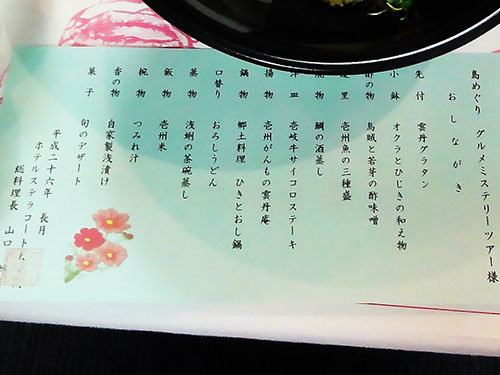 島めぐり グルメミステリーツアー様
おしながき
先付 雲丹グラタン
小鉢 オクラとひじきの和え物
酢の物 烏賊と若芽の酢味噌
里 壱州魚の三種盛
物 鯛の酒蒸し
洋皿 壱岐牛サイコロステーキ
揚物 壱州がんもの雲丹庵
鍋物 郷土料理 ひきとおし鍋
口替り おろしうどん
蒸物 浅蜊の茶碗蒸し
飯物 壱州米
椀物 つみれ汁
香の物 自家製浅漬け
菓子 旬のデザート
平成二十六年 長月
ホテルステラコート
総料理長 山口